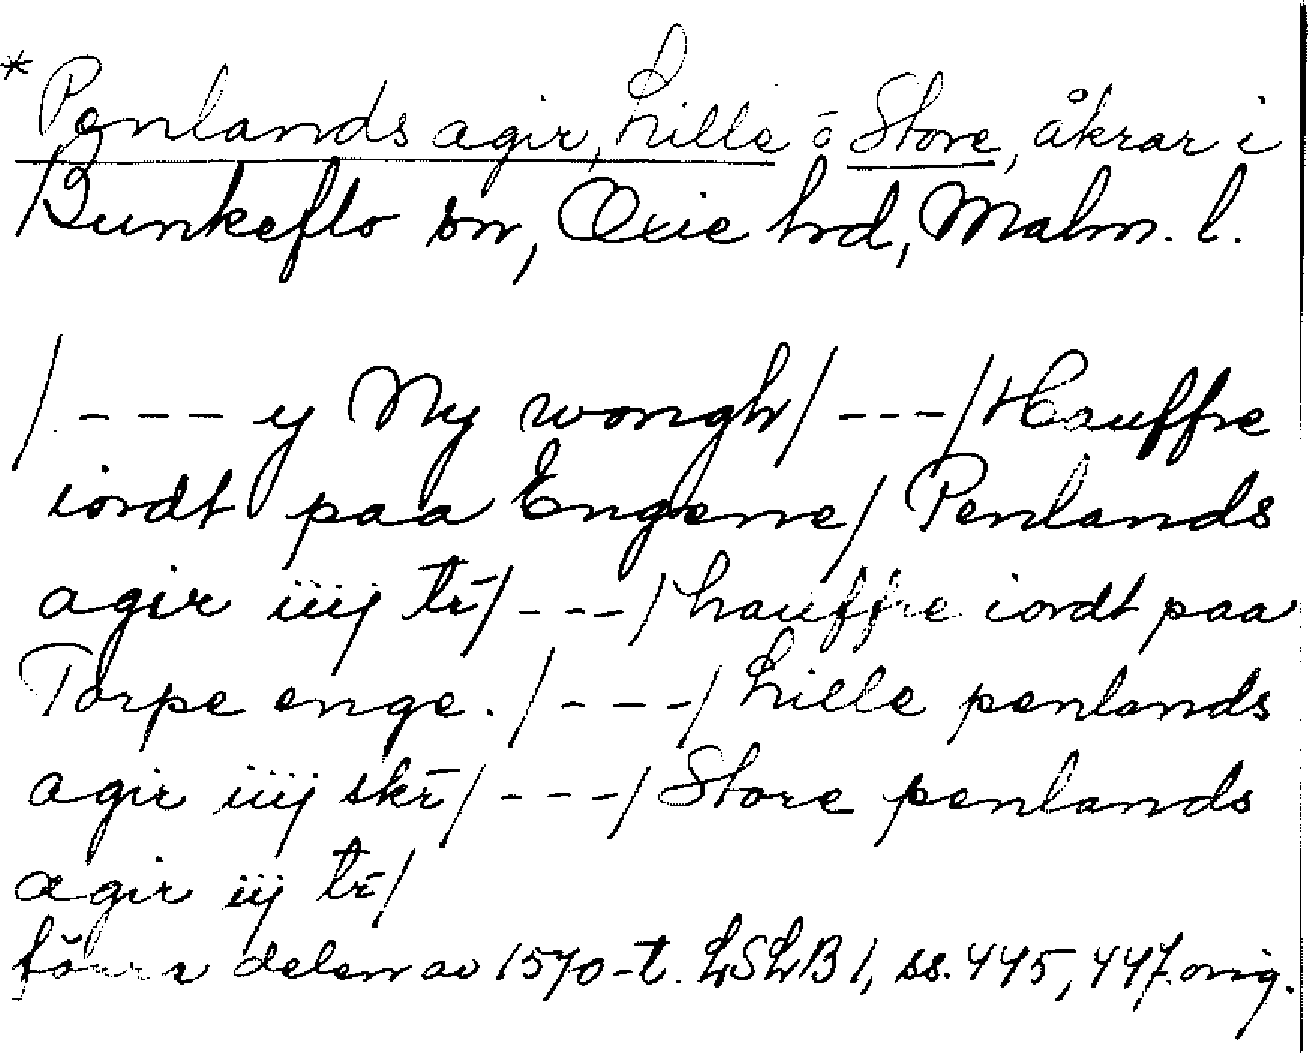 * Penlands agir, Lille o Store, åkrar i
Bunkeflo sn, Oxie hrd, Malm. l.
/ - - - y Ny wongh / - - - / Hauffre
iordt paa Engerne / Penlands
agir iiij tr̄ / - - - / hauffre iordt paa
Torpe enge. / - - - / Lille penlands
agir iiij skr̄ / - - - / Store penlands
agir iij tr̄ /
förra delen av 1570-t. LSLB 1, ss. 445, 447. orig.